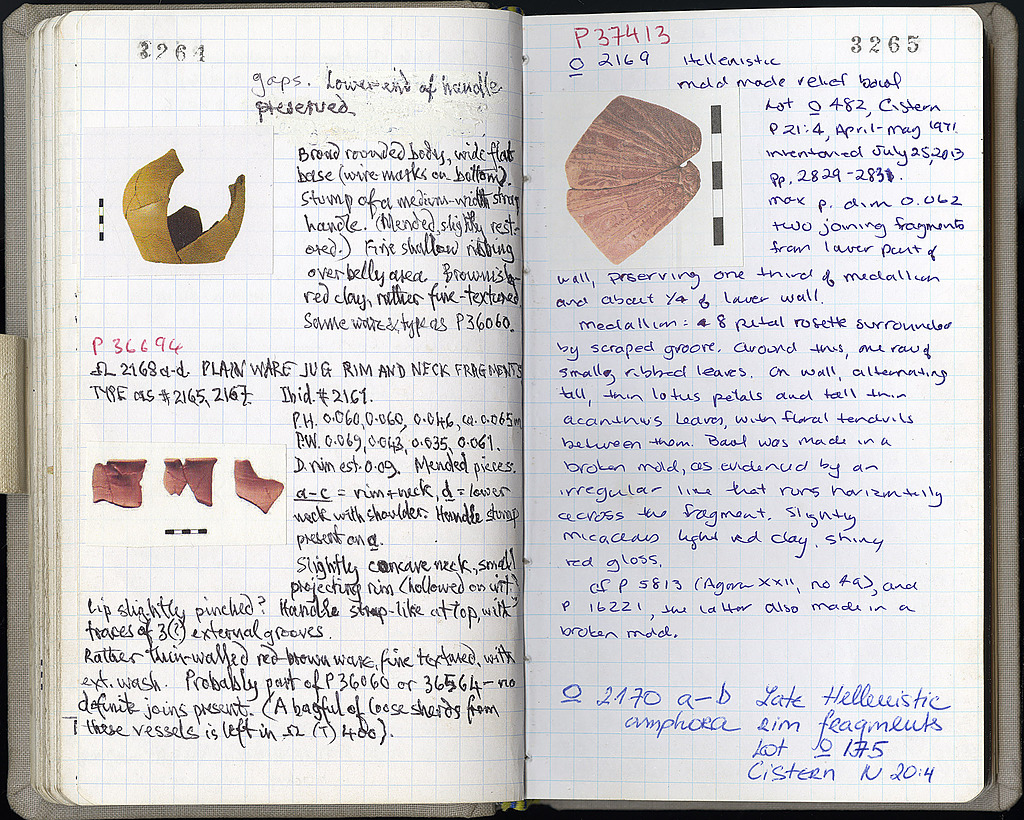 3264
gaps. Lower end of handle
preserved
Broad rounded body, wide flat
base (wire marks on bottom).
Stump of a medium-width strap
handle. (Mended, slightly rest-
ored.) Fine shallow ribbing
over belly area. Brownish-
red clay, rather fine-textured.
Same ware & type as P36060.
P 36694
Ω 2168 a-d. PLAIN WARE JUG RIM AND NECK FRAGMENTS
TYPE as #2165, 2167. Ibid. #2161.
P.H. 0.060, 0.060, 0.046, ca. 0.065m
P.W. 0.069, 0.043, 0.035, 0.061.
D. rim est. 0.09. Mended pieces.
a-c = rim + neck, d = lower
neck with shoulder. Handle stump
present on a.
Slightly concave neck, small
projecting rim (hollowed on int.)
Lip slightly pinched? Handle strap-like at top, with
traces of 3(?) external grooves.
Rather thin-walled red-brown ware, fine textured, with
ext. wash. Probably part of P36060 or 36564 - no
definite joins present. (A bagful of loose sherds from
these vessels is left in Ω (T) 400).
P 37413
3265
Ω 2169 Hellenistic
mold made relief bowl
Lot Ω 482, Cistern
P 21:4, April-May 1971
inventoried July 25, 2013
pp. 2829-2831.
max p. dim 0.062
two joining fragments
from lower part of
wall, preserving one third of medallion
and about 1/4 of lower wall.
medallion: 8 petal rosette surrounded
by scraped groove. Around this, one row of
small, ribbed leaves. On wall, alternating
tall, thin lotus petals and tall thin
acanthus leaves, with floral tendrils
between them. Bowl was made in a
broken mold, as evidenced by an
irregular line that runs horizontally
across the fragment. Slightly
micaceous light red clay, shiny
red gloss.
cf P 5813 (Agora XXII, no 49), and
P 16221, the latter also made in a
broken mold.
Ω 2170 a-b Late Hellenistic
amphora rim fragments
Lot Ω 175
Cistern N 20:4